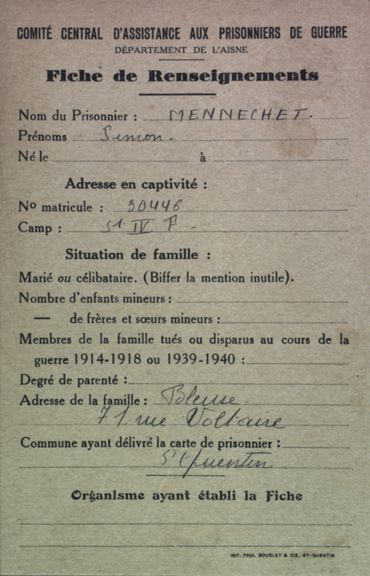 COMITÉ CENTRAL D'ASSISTANCE AUX PRISONNIERS DE GUERRE
DÉPARTEMENT DE L'AISNE
Fiche de Renseignements
Nom du Prisonnier : MENNECHET.
Prénoms Simon.
Né le à
Adresse en captivité :
No matricule : 30446
Camp : St IV F
Situation de famille :
Marié ou célibataire. (Biffer la mention inutile).
Nombre d'enfants mineurs :
— de frères et sœurs mineurs :
Membres de la famille tués ou disparus au cours de la
guerre 1914-1918 ou 1939-1940 :
Degré de parenté :
Adresse de la famille : Bleuse.
71 rue Voltaire
Commune ayant délivré la carte de prisonnier :
St Quentin
Organisme ayant établi la Fiche
IMP. PAUL BOURLET & CIE, ST-QUENTIN